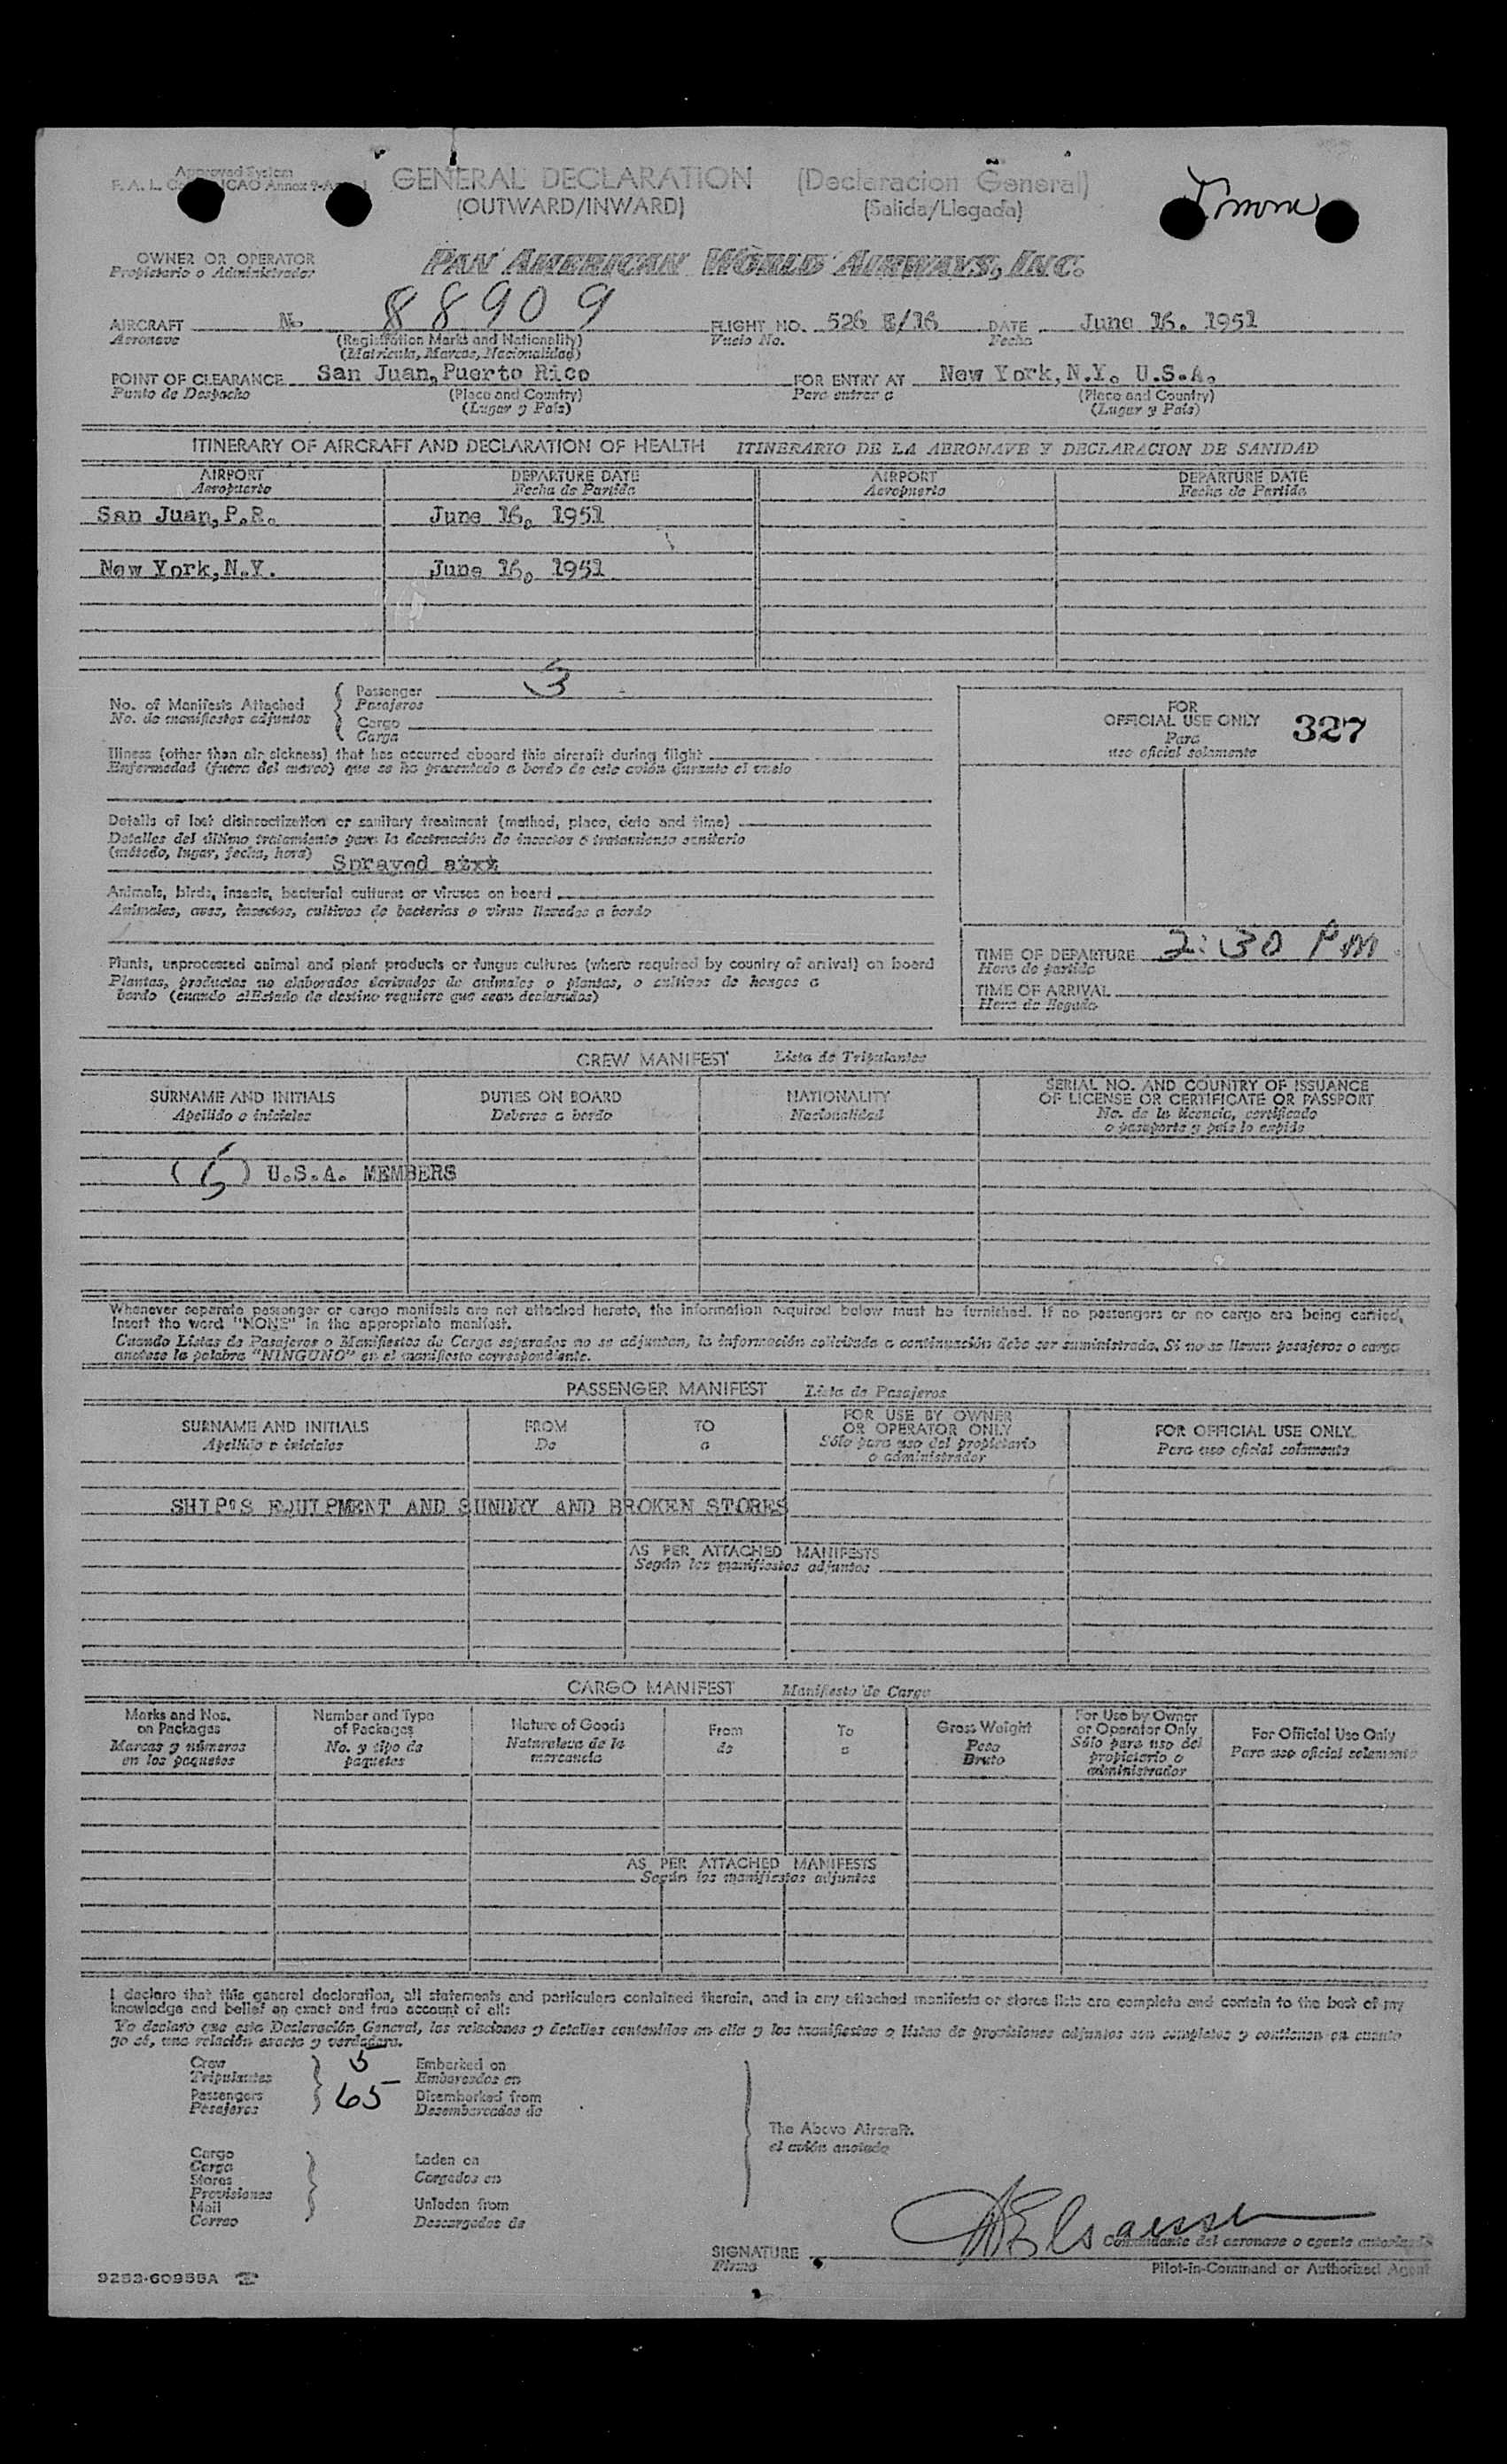 Approved System
F. A. L. ICAO Annex 9-
GENERAL DECLARATION (Declaracion General)
(OUTWARD/INWARD) (Salida/Llegada)
OWNER OR OPERATOR
Propietario o Administrador
PAN AMERICAN WORLD AIRWAYS, INC.
AIRCRAFT N. 88909 FLIGHT NO. 526 E/16 DATE June 16. 1951
Aeronave (Registration Marks and Nationality) Vuelo No. Fecha
(Matricula, Marcas, Nacionalidad)
POINT OF CLEARANCE San Juan, Puerto Rico FOR ENTRY AT New York, N.Y. U.S.A.
Punto de Despacho (Place and Country) Para entrar a (Place and Country)
(Lugar y País) (Lugar y País)
ITINERARY OF AIRCRAFT AND DECLARATION OF HEALTH ITINERARIO DE LA AERONAVE Y DECLARACION DE SANIDAD
AIRPORT DEPARTURE DATE AIRPORT DEPARTURE DATE
Aeropuerto Fecha de Partida Aeropuerto Fecha de Partida
San Juan, P.R. June 16, 1951
New York, N.Y. June 16, 1951
No. of Manifests Attached { Passenger 3
No. de manifiestos adjuntos Pasajeros
Cargo
Carga
Illness (other than air sickness) that has occurred aboard this aircraft during flight
Enfermedad (fuera del mareo) que se ha presentado a bordo de este avión durante el vuelo
Details of last disinsectization or sanitary treatment (method, place, date and time)
Detalles del último tratamiento para la destrucción de insectos ó tratamiento sanitario
(método, lugar, fecha, hora) Sprayed atxt
Animals, birds, insects, bacterial cultures or viruses on board
Animales, aves, insectos, cultivos de bacterias o virus llevados a bordo
Plants, unprocessed animal and plant products or fungus cultures (where required by country of arrival) on board
Plantas, productos no elaborados derivados de animales o plantas, o cultivos de hongos a
bordo (cuando elEstado de destino requiere que sean declarados)
FOR
OFFICIAL USE ONLY 327
Para
uso oficial solamente
TIME OF DEPARTURE 2:30 PM
Hora de partida
TIME OF ARRIVAL
Hora de llegada
CREW MANIFEST Lista de Tripulantes
SURNAME AND INITIALS DUTIES ON BOARD NATIONALITY SERIAL NO. AND COUNTRY OF ISSUANCE
OF LICENSE OR CERTIFICATE OR PASSPORT
Apellido e iniciales Deberes a bordo Nacionalidad No. de la licencia, certificado
o pasaporte y país lo expide
(5) U.S.A. MEMBERS
Whenever separate passenger or cargo manifests are not attached hereto, the information required below must be furnished. If no passengers or no cargo are being carried,
insert the word "NONE" in the appropriate manifest.
Cuando Listas de Pasajeros o Manifiestos de Carga separados no se adjuntan, la información solicitada a continuación debe ser suministrada. Si no se llevan pasajeros o carga
anótese la palabra "NINGUNO" en el manifiesto correspondiente.
PASSENGER MANIFEST Lista de Pasajeros
SURNAME AND INITIALS FROM TO FOR USE BY OWNER
OR OPERATOR ONLY FOR OFFICIAL USE ONLY
Apellido e iniciales De a Sólo para uso del propietario
o administrador Para uso oficial solamente
SHIP'S EQUIPMENT AND SUNDRY AND BROKEN STORES
AS PER ATTACHED MANIFESTS
Según los manifiestos adjuntos
CARGO MANIFEST Manifiesto de Carga
Marks and Nos.
on Packages
Marcas y números
en los paquetes
Number and Type
of Packages
No. y tipo de
paquetes
Nature of Goods
Naturaleza de la
mercancia
From
de
To
a
Gross Weight
Peso
Bruto
For Use by Owner
or Operator Only
Sólo para uso del
propietario o
administrador
For Official Use Only
Para uso oficial solamente
AS PER ATTACHED MANIFESTS
Según los manifiestos adjuntos
I declare that this general declaration, all statements and particulars contained therein, and in any attached manifests or stores lists are complete and contain to the best of my
knowledge and belief an exact and true account of all:
Yo declaro que esta Declaración General, las relaciones y detalles contenidos en ella y los manifiestos o listas de provisiones adjuntos son completos y contienen en cuanto
yo sé, una relación exacta y verdadera.
Crew 5 Embarked on
Tripulantes Embarcados en
Passengers 65 Disembarked from
Pasajeros Desembarcados de
The Above Aircraft.
el avión anotado
Cargo
Carga Laden on
Stores Cargados en
Provisiones
Mail Unladen from
Correo Descargados de
SIGNATURE
Firma
Comandante del aeronave o agente autorizado
Pilot-in-Command or Authorized Agent
9253-60955A